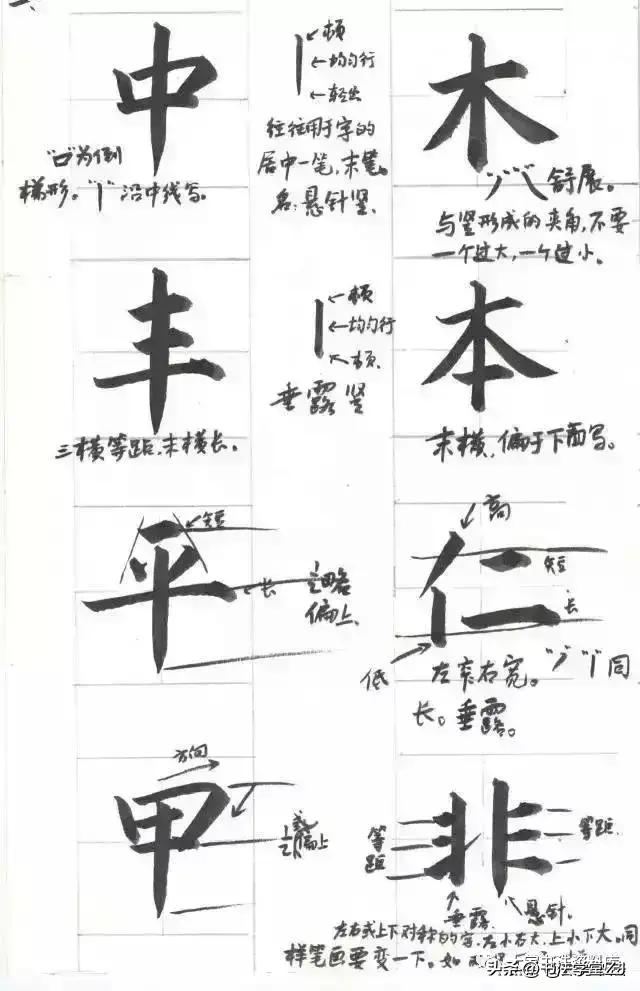 中
"口"为倒
梯形。"丨"沿中线写。
顿
均匀行
轻出
往往用于字的
居中一笔,末笔。
名:悬针竖.
木
"丿""乀"舒展。
与竖形成的夹角,不要
一个过大,一个过小。
丰
三横等距,末横长。
顿
均匀行
顿.
垂露竖
本
末横,偏于下面写。
平
短
长
略
偏上.
仁
高
短
长
低
左窄右宽。"丿""丨"同
长。垂露。
甲
方向
偏上
非
等
距
等距.
垂露.
悬针.
左右或上下对称的字,左小右大,上小下大。同
样笔画要变一下。如
头条@书法学堂Zg